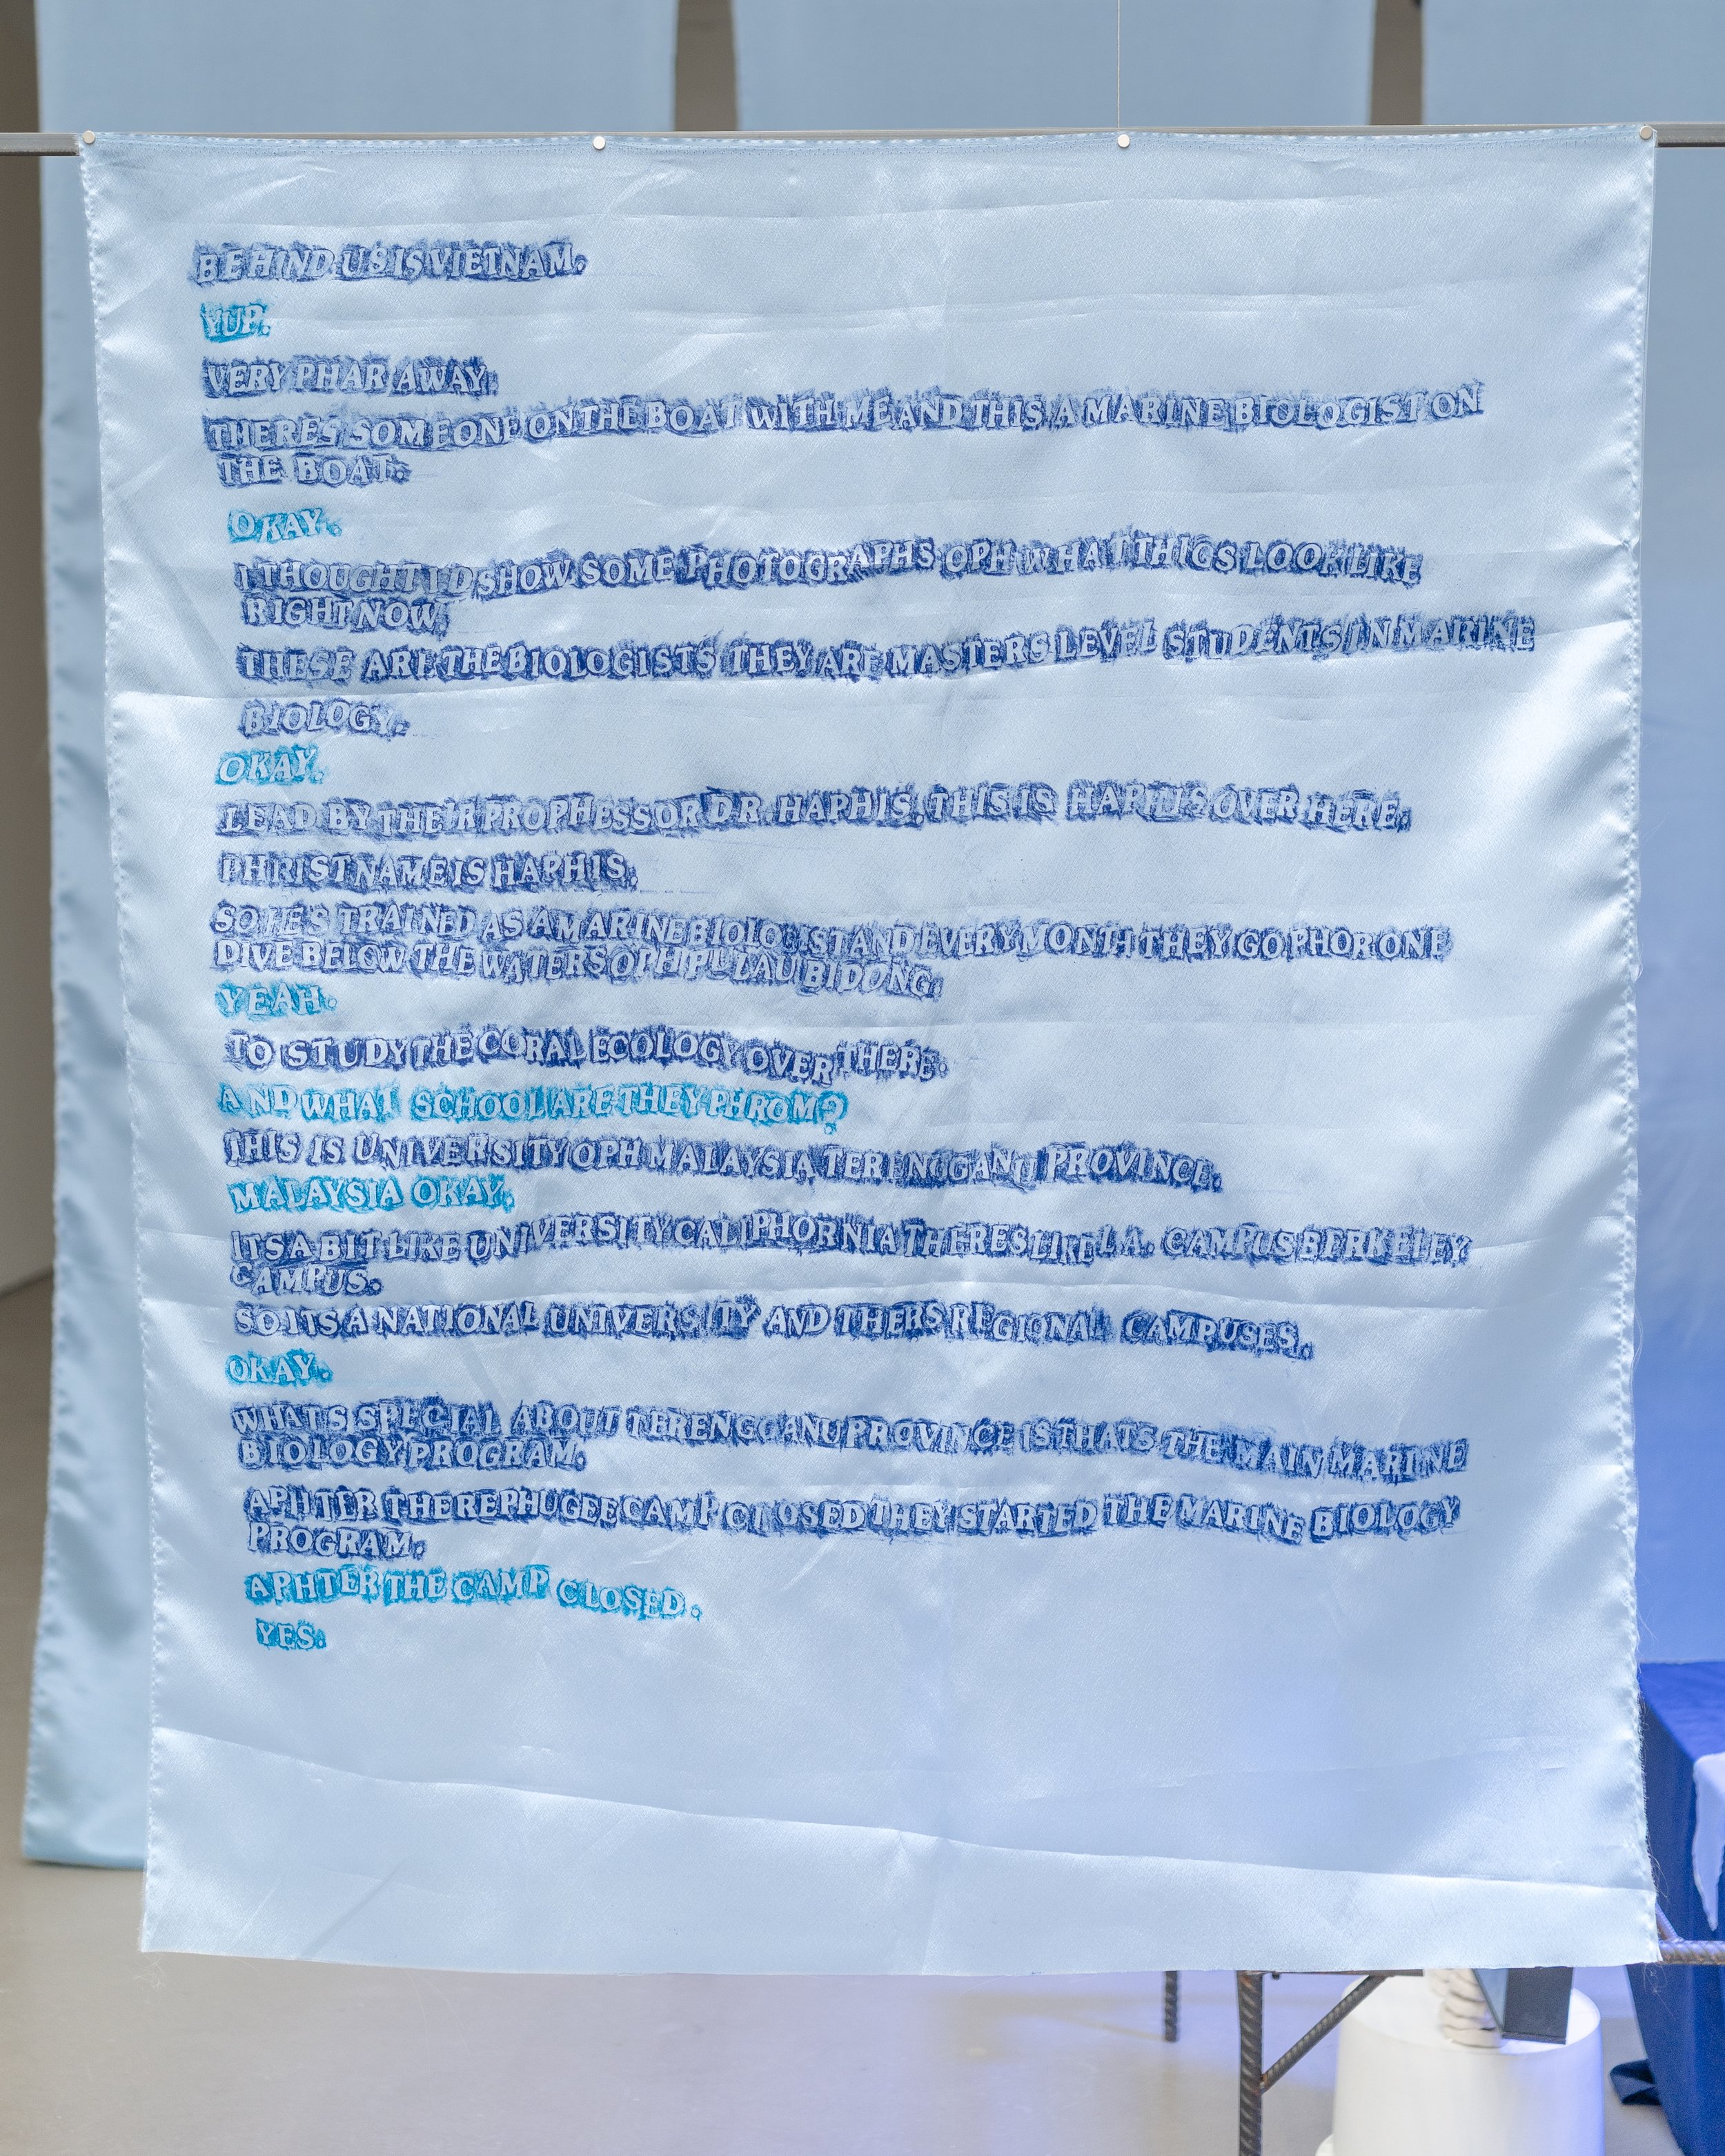 BEHIND US IS VIETNAM.
YUP.
VERY PHAR AWAY.
THERES SOMEONE ON THE BOAT WITH ME AND THIS A MARINE BIOLOGIST ON
THE BOAT.
OKAY.
I THOUGHT I D SHOW SOME PHOTOGRAPHS OPH WHAT THIGS LOOK LIKE
RIGHT NOW.
THESE ARE THE BIOLOGISTS THEY ARE MASTERS LEVEL STUDENTS IN MARINE
BIOLOGY.
OKAY.
LEAD BY THEIR PROPHESSOR DR. HAPHIS. THIS IS HAPHIS OVER HERE.
PHRIST NAME IS HAPHIS.
SO HES TRAINED AS A MARINE BIOLOGIST AND EVERY MONTH THEY GO PHOR ONE
DIVE BELOW THE WATERS OPH PULAU BIDONG.
YEAH.
TO STUDY THE CORAL ECOLOGY OVER THERE.
AND WHAT SCHOOL ARE THEY PHROM?
THIS IS UNIVERSITY OPH MALAYSIA TERENGGANU PROVINCE.
MALAYSIA OKAY.
ITS A BIT LIKE UNIVERSITY CALIPHORNIA THERES LIKE L.A. CAMPUS BERKELEY
CAMPUS.
SO ITS A NATIONAL UNIVERSITY AND THERS REGIONAL CAMPUSES.
OKAY.
WHATS SPECIAL ABOUT TERENGGANU PROVINCE IS THATS THE MAIN MARINE
BIOLOGY PROGRAM.
APHTER THE REPHUGEE CAMP CLOSED THEY STARTED THE MARINE BIOLOGY
PROGRAM.
APHTER THE CAMP CLOSED.
YES.